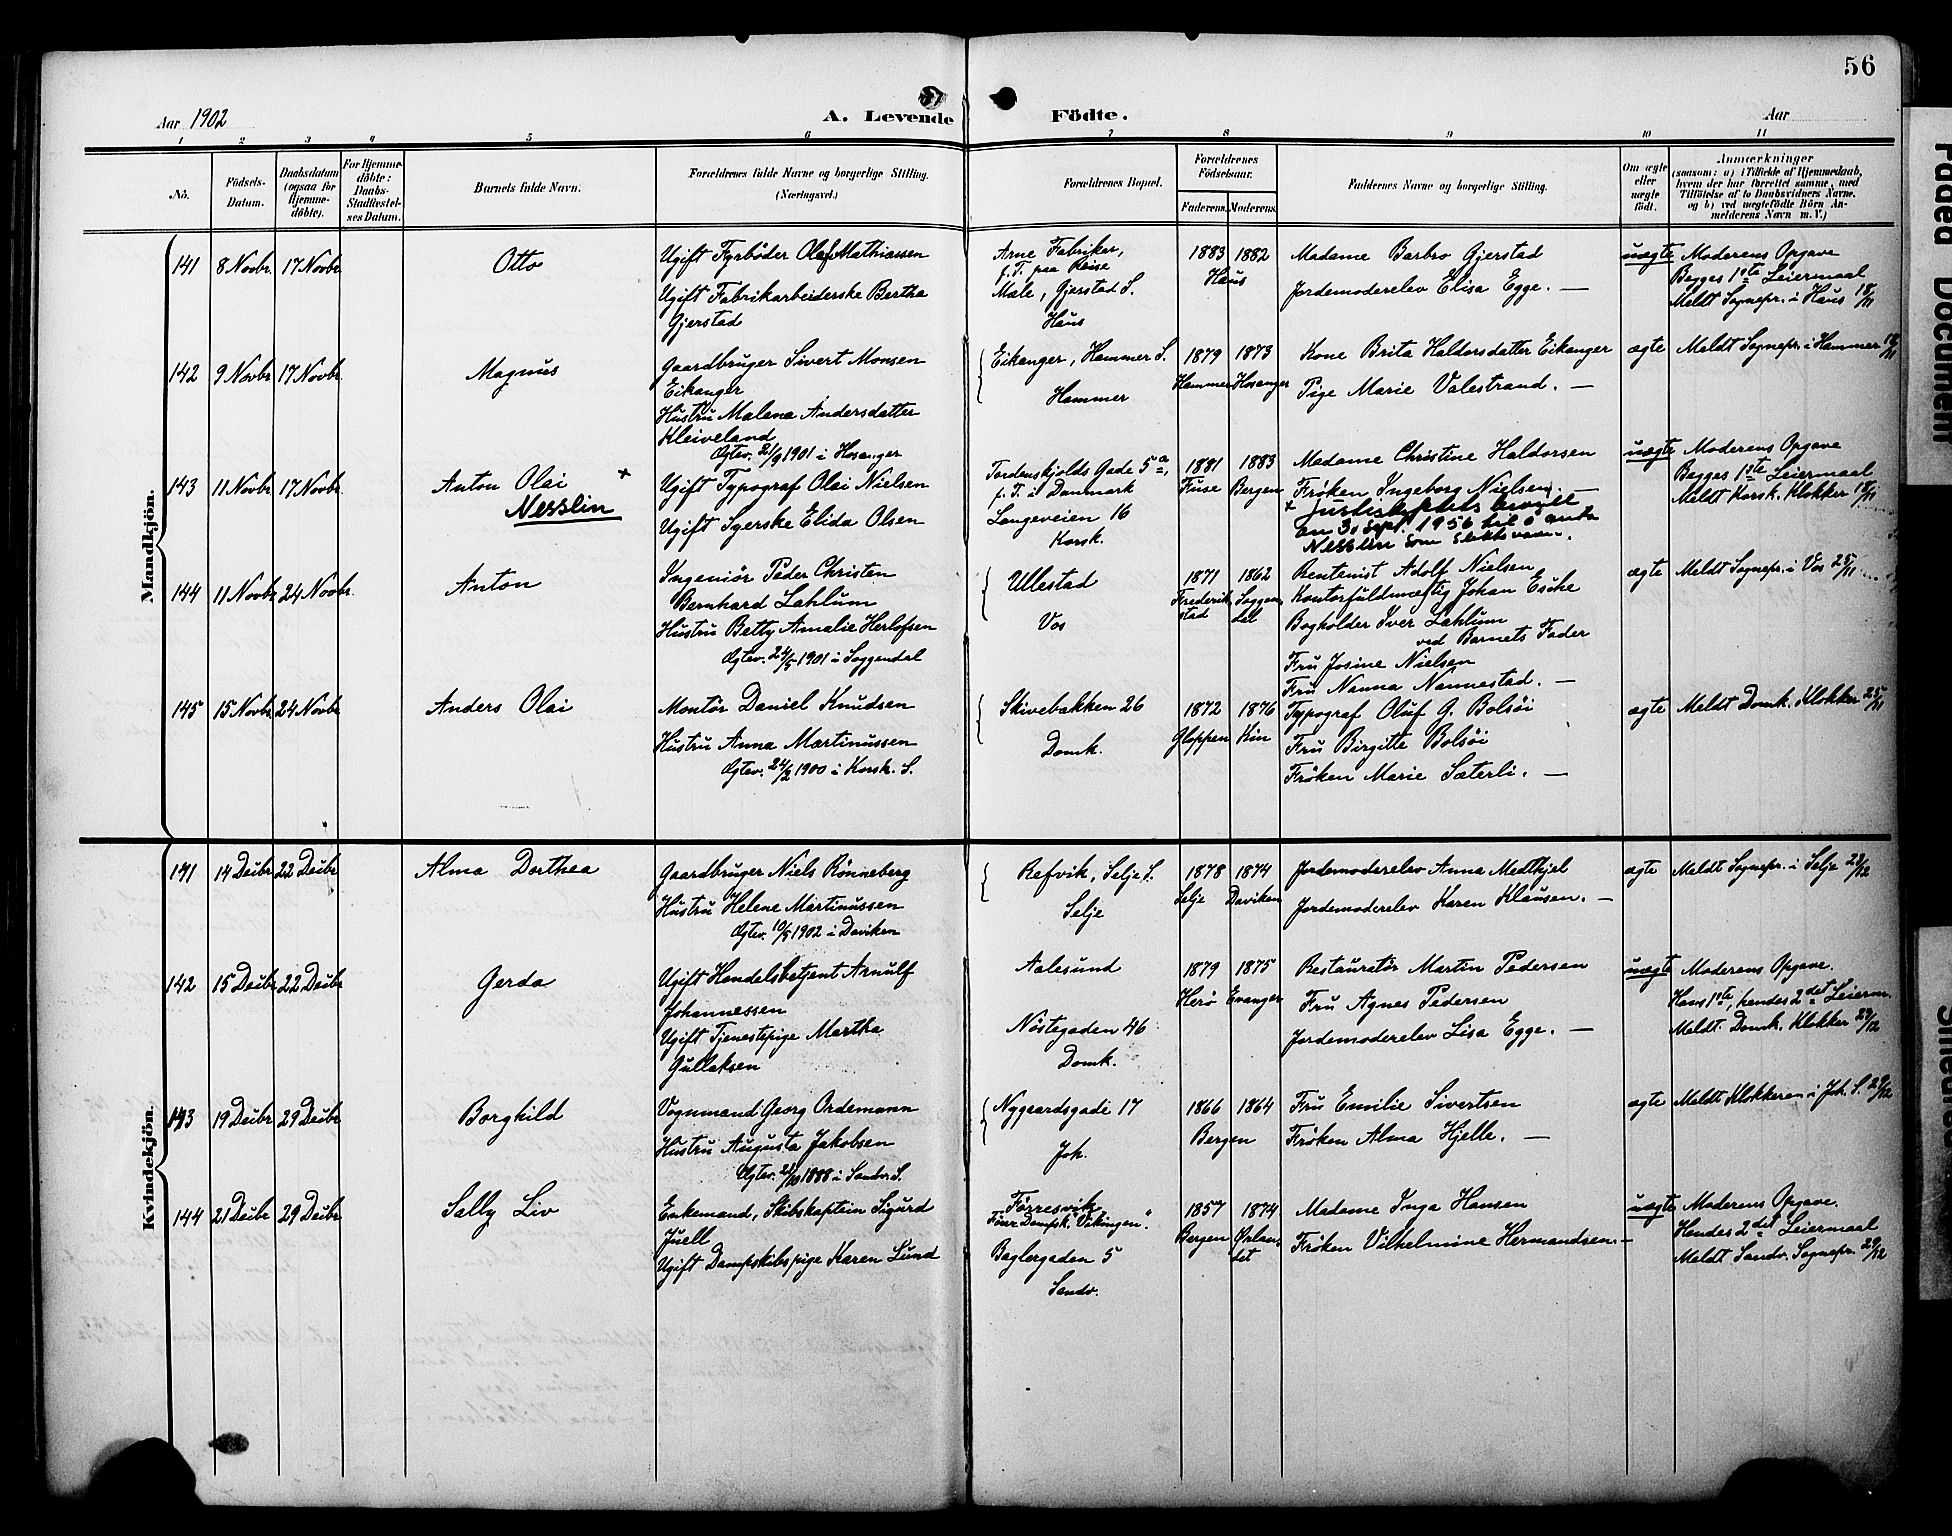 56
Aar 1902
A. Levende Födte.
Aar
1 2 3 4 5 6 7 8 9 10 11
No.
Födsels-Datum.
Daabsdatum (ogsaa for Hjemme-döbte).
For Hjemme-döbte: Daabs-Stadfæstel-ses Datum.
Barnets fulde Navn.
Forældrenes fulde Navne og borgerlige Stilling. (Næringsvei.)
Forældrenes Bopæl.
Forældrenes Födselsaar.
Faderens. Moderens.
Faddernes Navne og borgerlige Stilling.
Om ægte eller uægte födt.
Anmærkninger
(saasom: a) i Tilfælde af Hjemmedaab,
hvem der har forrettet samme, med
Tilföielse af to Daabsvidners Navne,
og b) ved uægtefödte Börn An-
melderens Navn m. V.)
Mandkjön.
141 8 Novbr. 17 Novbr.
Otto
Ugift Fyrbøder Olaf Mathiassen
Ugift Fabrikarbeiderske Bertha
Gjerstad
Arne Fabriker,
f. T. paa Reise
Mæle, Gjerstad S.
Haus
1883 1882
Haus
Madame Barbro Gjerstad
Jordemoderelev Elisa Egge. —
uægte
Moderens Opgave
Begges 1ste Leiermaal
Meldt Sognepr. i Haus 18/11
142 9 Novbr. 17 Novbr.
Magnus
Gaardbruger Sivert Monsen
Eikanger
Hustru Malena Andersdatter
Kleiveland
Ægtev. 21/9 1901 i Hosanger
Eikanger, Hammer S.
Hammer
1879 1873
Hammer Hosanger
Kone Brita Haldorsdatter Eikanger
Pige Marie Valestrand. —
ægte
Meldt Sognepr. i Hammer 18/11
143 11 Novbr. 17 Novbr.
Anton Olai +
Nesslin
Ugift Typograf Olai Nielsen
Ugift Syerske Elida Olsen
Tordenskjolds Gade 5a,
f. T. i Danmark
Langeveien 16
Korsk.
1881 1883
Fuse Bergen
Madame Christine Haldorsen
Frøken Ingeborg Nielsen. —
+ Justisdepptets bevill
en 3 Sept. 1956 til å anta
Nesslin som slektsnavn.
uægte
Moderens Opgave
Begges 1ste Leiermaal
Meldt Korsk. Klokker 18/11
144 11 Novbr. 24 Novbr.
Anton
Ingeniör Peder Christen
Bernhard Lahlum
Hustru Betty Amalie Herlofsen
Ægtev. 24/5 1901 i Soggendal
Ullestad
Vos
1871 1862
Frederik-stad Soggen-dal
Rentenist Adolf Nielsen
Kontorfuldmægtig Johan Esche
Bogholder Iver Lahlum
ved Barnets Fader
Fru Josine Nielsen
Fru Nanna Nannestad. —
ægte
Meldt Sognepr. i Vos 25/11
145 15 Novbr. 24 Novbr.
Anders Olai
Montör Daniel Knudsen
Hustru Anna Martinussen
Ægtev. 24/2 1900 i Korsk. S.
Skivebakken 26
Domk.
1872 1876
Gloppen Kin
Typograf Oluf G. Bolsöi
Fru Birgitte Bolsöi
Frøken Marie Sæterli. —
ægte
Meldt Domk. Klokker 25/11
Kvindekjön.
141 14 Decbr. 22 Decbr.
Alma Dorthea
Gaardbruger Niels Rönneberg
Hustru Helene Martinussen
Ægtev. 10/5 1902 i Daviken
Refvik, Selje S.
Selje
1878 1874
Selje Daviken
Jordemoderelev Anna Medthjel
Jordemoderelev Karen Klausen. —
ægte
Meldt Sognepr. i Selje 23/12
142 15 Decbr. 22 Decbr.
Gerda
Ugift Handelsbetjent Arnulf
Johannessen
Ugift Tjenestepige Martha
Gullaksen
Aalesund
Nöstegaden 46
Domk.
1879 1875
Herö Evanger
Restauratør Martin Pedersen
Fru Agnes Pedersen
Jordemoderelev Lisa Egge. —
uægte
Moderens Opgave.
Hans 1ste, hendes 2det Leierm.
Meldt Domk. Klokker 23/12
143 19 Decbr. 29 Decbr.
Borghild
Vognmand Georg Ordemann
Hustru Augusta Jakobsen
Ægtev. 21/10 1888 i Sandv. S.
Nygaardsgade 17
Joh.
1866 1864
Bergen
Fru Emilie Sivertsen
Frøken Alma Hjelle. —
ægte
Meldt Klokkeren i Joh. S. 29/12
144 21 Decbr. 29 Decbr.
Sally Liv
Enkemand, Skibskaptein Sigurd
Juell
Ugift Dampskibspige Karen Lund
Førresvik
Förer Dampsk. "Vikingen".
Baglergaden 5
Sandv.
1857 1874
Bergen Ørlan-det
Madame Inga Hansen
Frøken Vilhelmine Hermandsen. —
uægte
Moderens Opgave.
Hendes 2det Leiermaal
Meldt Sandv. Sognepr. 29/12
Faded Document